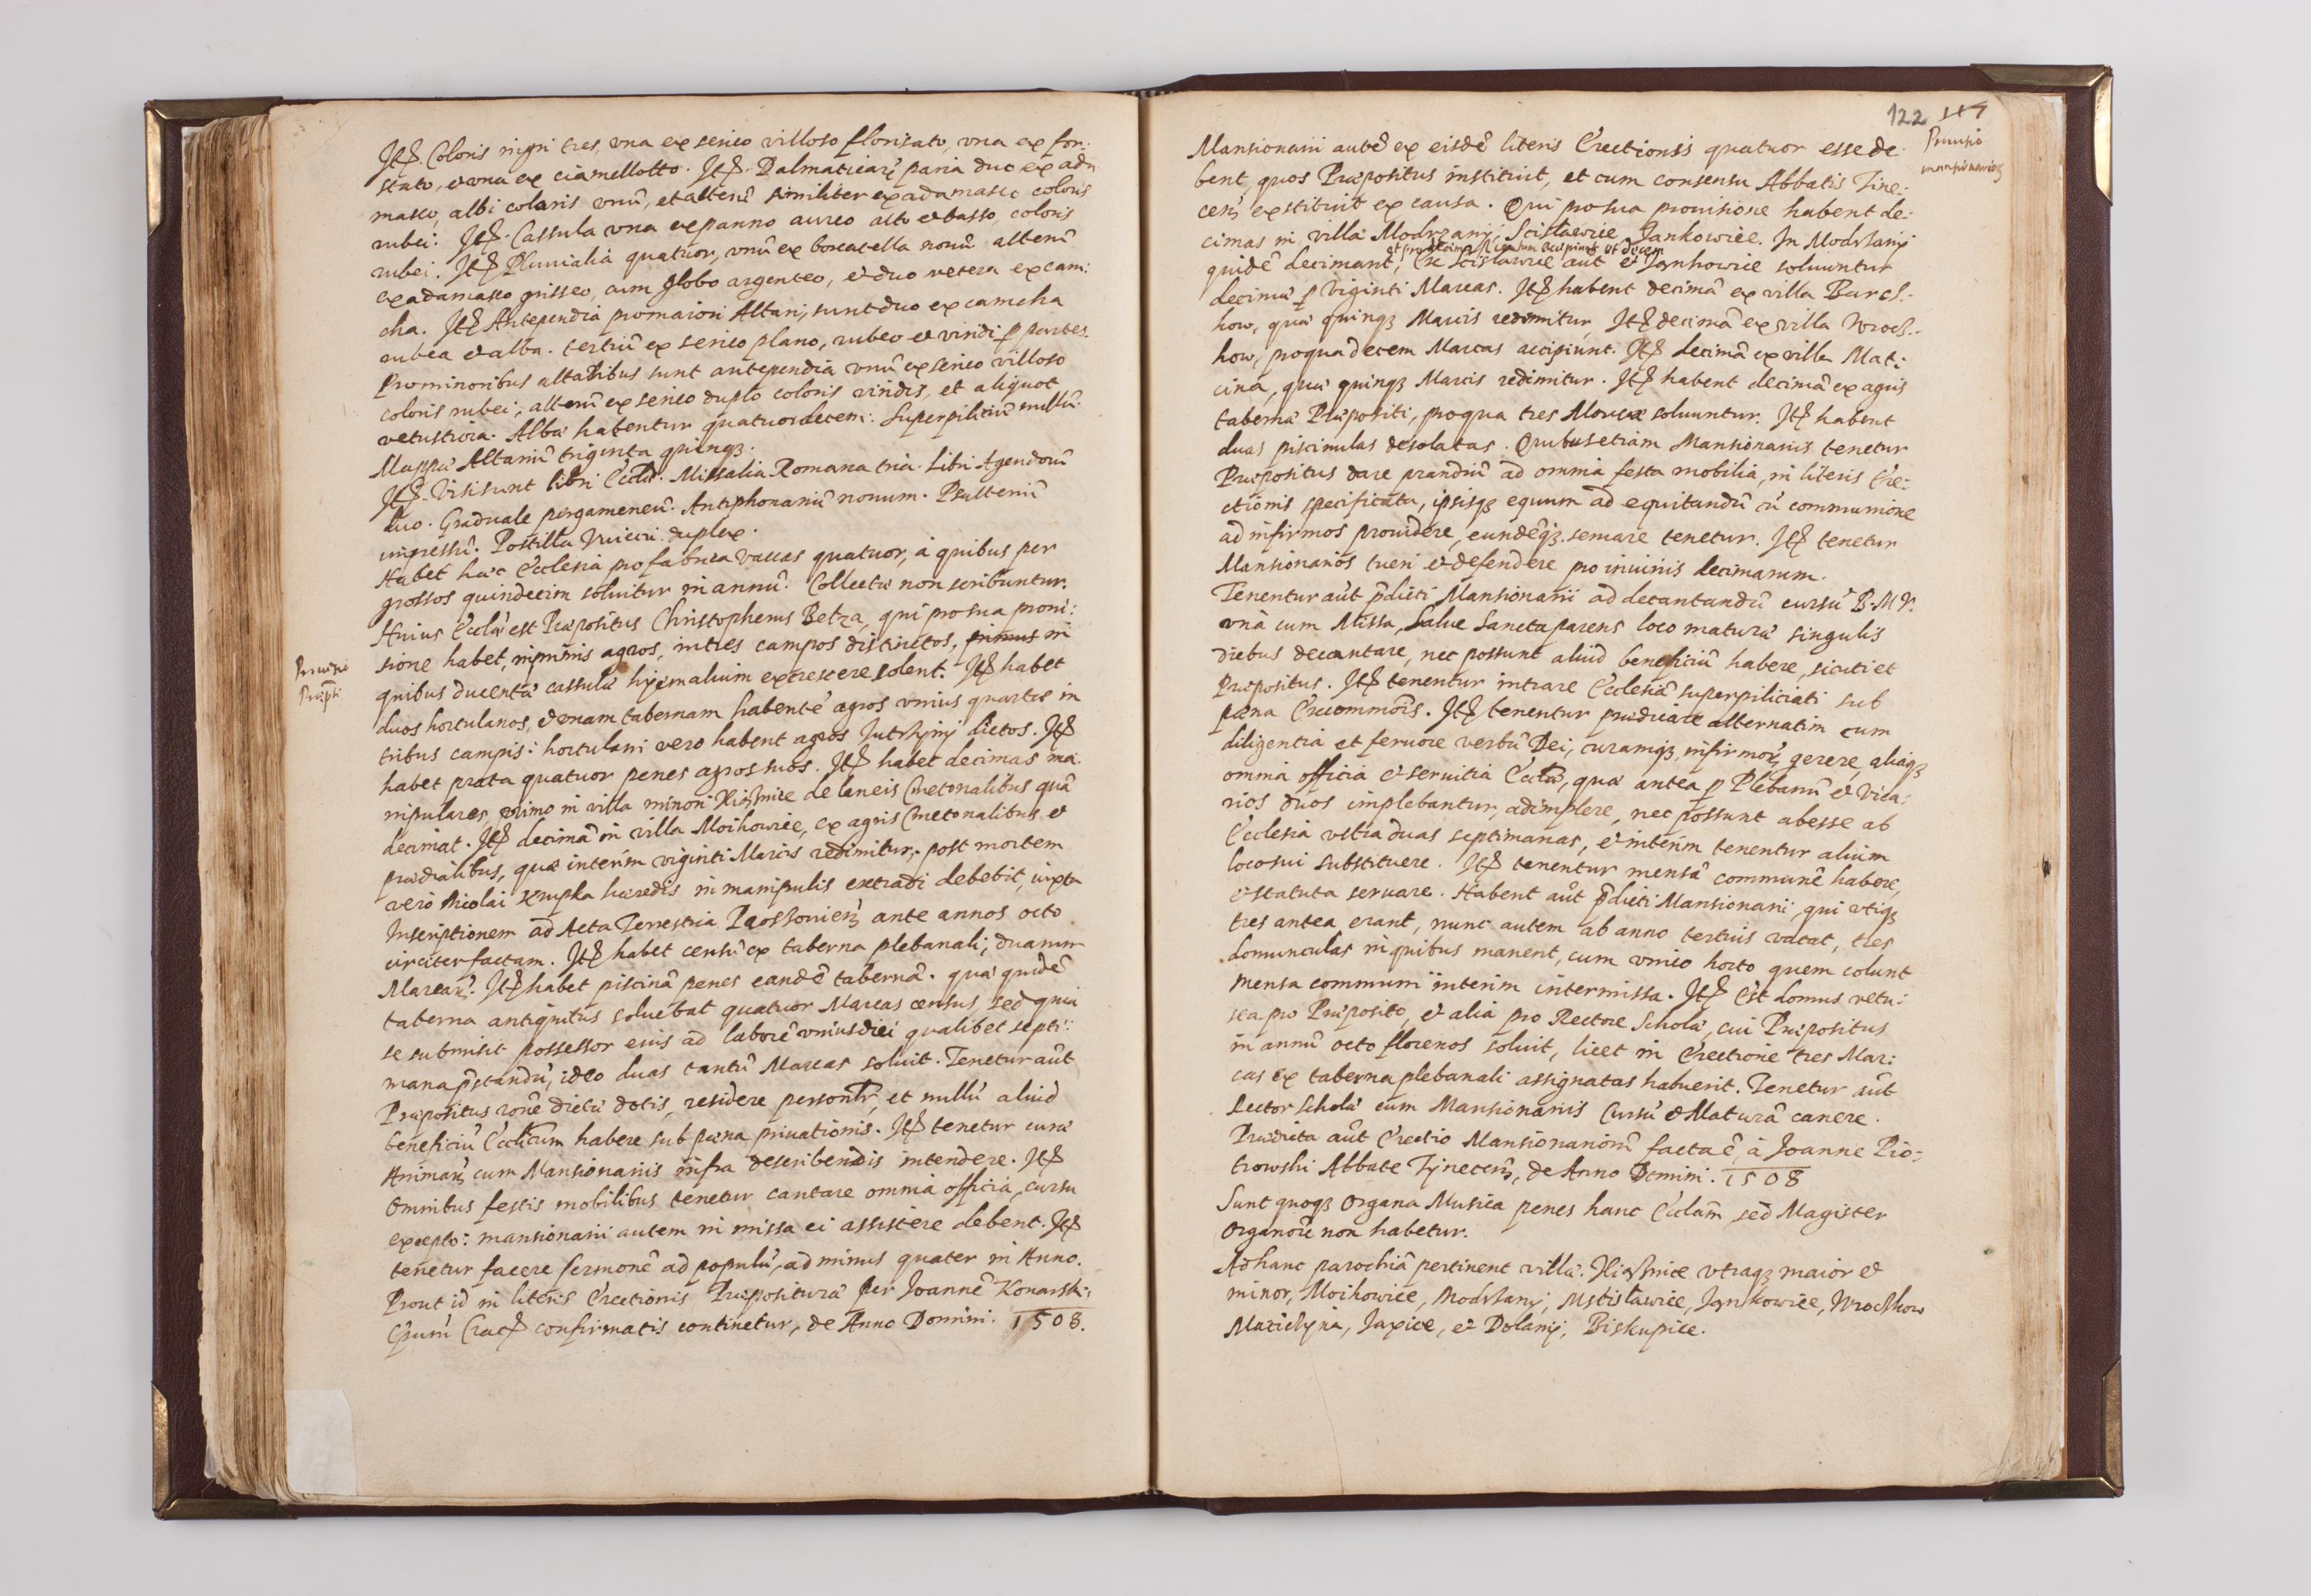 Itē. Coloris nigri tres, vna ex serico villoso florisato, vna ex for-
stato, et vna ex ciamellotto. Itē. Dalmaticarū paria duo ex ada
masco, albi coloris vnū, et alterū similiter ex adamasco coloris
rubei. Itē. Cassula vna ex panno aureo alto et basso, coloris
rubei. Itē Pluuialia quatuor, vnū ex boccatella nouū alterū
ex adamasco grisseo, cum globo argenteo, et duo vetera ex cam:
cha. Itē Antependia pro maiori Altari, sunt duo ex camcha
rubea et alba. tertiū ex serico plano, rubeo et viridi p partes.
Pro minoribus altaribus sunt antependia vnū ex serico villoso
coloris rubei, alterū ex serico duplo coloris viridis, et aliquot
vetustiora. Albæ habentur quatuordecem: Superpiliciū nullū.
Mappæ Altariū triginta quinqȝ.
Itē. Visi sunt libri Eccl̄æ. Missalia Romana tria. Libri Agendorū
duo. Graduale pergameneū. Antiphonariū nouum. Psalteriū
impressū. Postilla Vuiecii duplex.
Habet hæc Ecclesia pro fabrica vaccas quatuor, à quibus per
grossos quindecim soluitur in annū. Collectæ non scribuntur.
Huius Eccl̄æ est Præpositus Christophorus Betza, qui pro sua proui:
sione habet, inprimis agros, in tres campos distinctos, primus in
quibus ducentæ cassulæ hyemalium excrescere solent. Itē habet
duos hortulanos, et vnam tabernam habentē agros vnius quartæ in
tribus campis: hortulani vero habent agros Jutrzÿnÿ dictos. Itē
habet prata quatuor penes agros suos. Itē habet decimas ma.
nipulares, primo in villa minori Xiąsznice de laneis Cmetonalibus quā
decimat. Itē decimā in villa Moikowice, ex agris Cmetonalibus et
prædialibus, quæ interim viginti Marcis redimitur, post mortem
verò Nicolai Krupka hæredis in manipulis extradi debebit, iuxta
Inscriptionem ad Acta Terrestria Proszouien̄ ante annos octo
circiter factam. Itē habet censū ex taberna plebanali, duarum
Marcarū. Itē habet piscinā penes eandē tabernā. quæ quidē
taberna antiquitus soluebat quatuor Marcas census, sed quia
se submisit possessor eius ad laborē vnius diei qualibet septi:
mana p̄standū, ideo duas tantū Marcas soluit. Tenetur aūt
Præpositus rōne dictæ dotis, residere personl̄r, et nullū aliud
beneficiū Eccl̄icum habere sub pœna priuationis. Itē tenetur curæ
Animarū cum Mansionariis infra describendis intendere. Itē
Omnibus festis mobilibus tenetur cantare omnia officia, cursu
excepto: mansionarii autem in missa ei assistere debent. Itē
tenetur facere sermonē ad populū, ad minus quater in Anno.
Prout id in literis Erectionis Præpositura per Joannē Konarski,
Ep̄um Crac̄ confirmatis continetur, de Anno Domini. 1508.
Prouisio
Præpti
122 117
Prouisio
mansionarioȝ
Mansionarii autē ex eisdē literis Erectionis quatuor esse de-
bent, quos Præpositus instituit, et cum consensu Abbatis Tine:
cen̄ extituit ex causa. Qui pro sua prouisione habent de:
cimas in villa Modrzanÿ, Scislawice Jankowice. In Modrzanÿ
quidē decimant, Ex Scislawice aūt et Jankowice soluuntur
decimæ p Viginti Marcas. Itē habent decimā ex villa Burcz-
kow, quæ quinqȝ Marcis redimitur, Itē decimā ex villa Wrocz-
kow, pro qua decem Marcas accipiunt. Itē decimā ex villa Mat:
cina, quæ quinqȝ Marcis redimitur. Itē habent decimā ex agris
tabernæ Præpositi, pro qua tres Marcæ soluuntur. Itē habent
duas piscinulas desolatas. Quibus etiam Mansionariis tenetur
Præpositus dare prandiū ad omnia festa mobilia, in literis Ere-
ctionis specificata, ipsisqȝ equum ad equitandū cū communione
ad infirmos prouidere, eundēqȝ seruare tenetur. Itē tenetur
Mansionarios tueri et defendere pro iniuriis decimarum.
Tenentur aūt p̄dicti Mansionarii ad decantandū cursū B. M. V.
vnà cum Missa, Salue Sancta parens loco maturæ singulis
diebus decantare, nec possunt aliud beneficiū habere, sicuti et
Præpositus. Itē tenentur intrare Ecclesiā superpiliciati sub
pœna Excommōis. Itē tenentur prædicare alternatim cum
diligentia et feruore verbū Dei, curamqȝ infirmorū gerere, aliaqȝ
omnia officia et seruitia Eccl̄æ, quæ antea p Plebanū et Vica:
rios duos implebantur, adimplere, nec possunt abesse ab
Ecclesia vltra duas septimanas, et interim tenentur alium
loco sui substituere. Itē tenentur mensā communē habere,
et statuta seruare. Habent aūt p̄dicti Mansionarii, qui vtiqȝ
tres antea erant, nunc autem ab anno tertius vacat, tres
domunculas in quibus manent, cum vnico horto quem colunt
mensa communi interim intermissa. Itē est domus vetu:
sta pro Præposito, et alia pro Rectore Scholæ, cui Præpositus
in annū octo florenos soluit, licet in Erectione tres Mar:
cas ex taberna plebanali assignatas habuerit. Tenetur aūt
Rector scholæ cum Mansionariis Cursū et Maturā canere.
Prædicta aūt Erectio Mansionariorū facta ē, à Joanne Pio-
trowski Abbate Tÿnecen̄, de Anno Domini. 1508
Sunt quoqȝ Organa Musica penes hanc Eccl̄am sed Magister
Organorū non habetur.
Ad hanc parochiā pertinent villæ. Xiąsznice vtraqȝ maior et
minor, Moikowice, Modrzanÿ, Mstislawice, Jankowice, Wroczkow
Maciekÿna, Jaxice, et Dolanÿ, Biskupice.